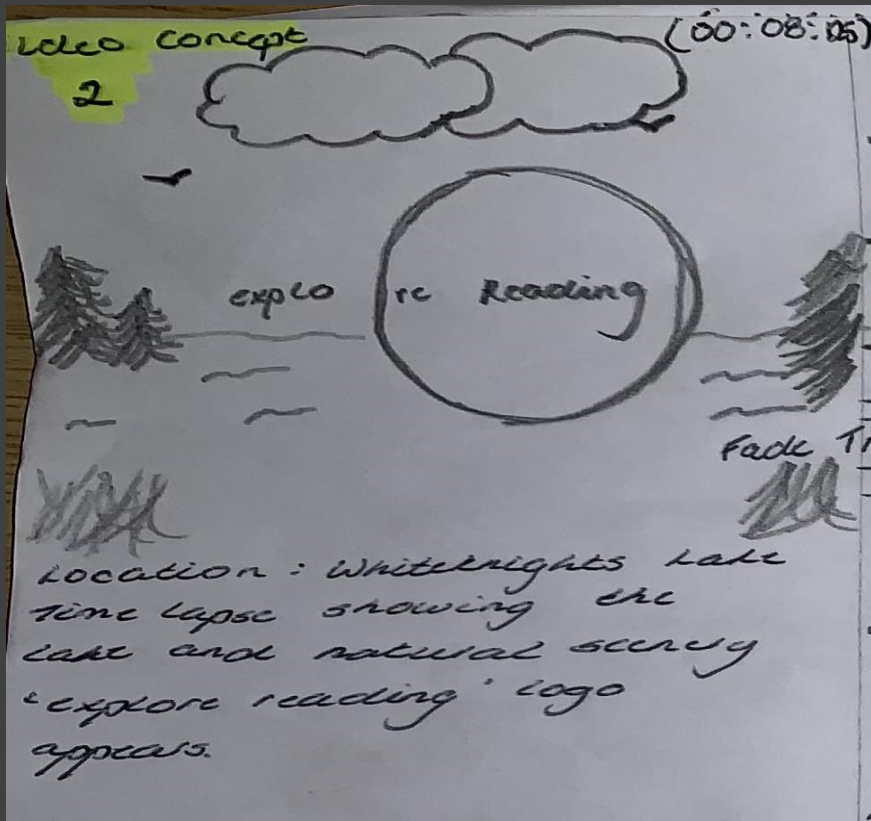 video concept
2
(00:08:05)
explo re Reading
Fade Tr
Location: Whiteknights Lake
Time lapse showing the
lake and natural scenery
'explore reading' logo
appears.